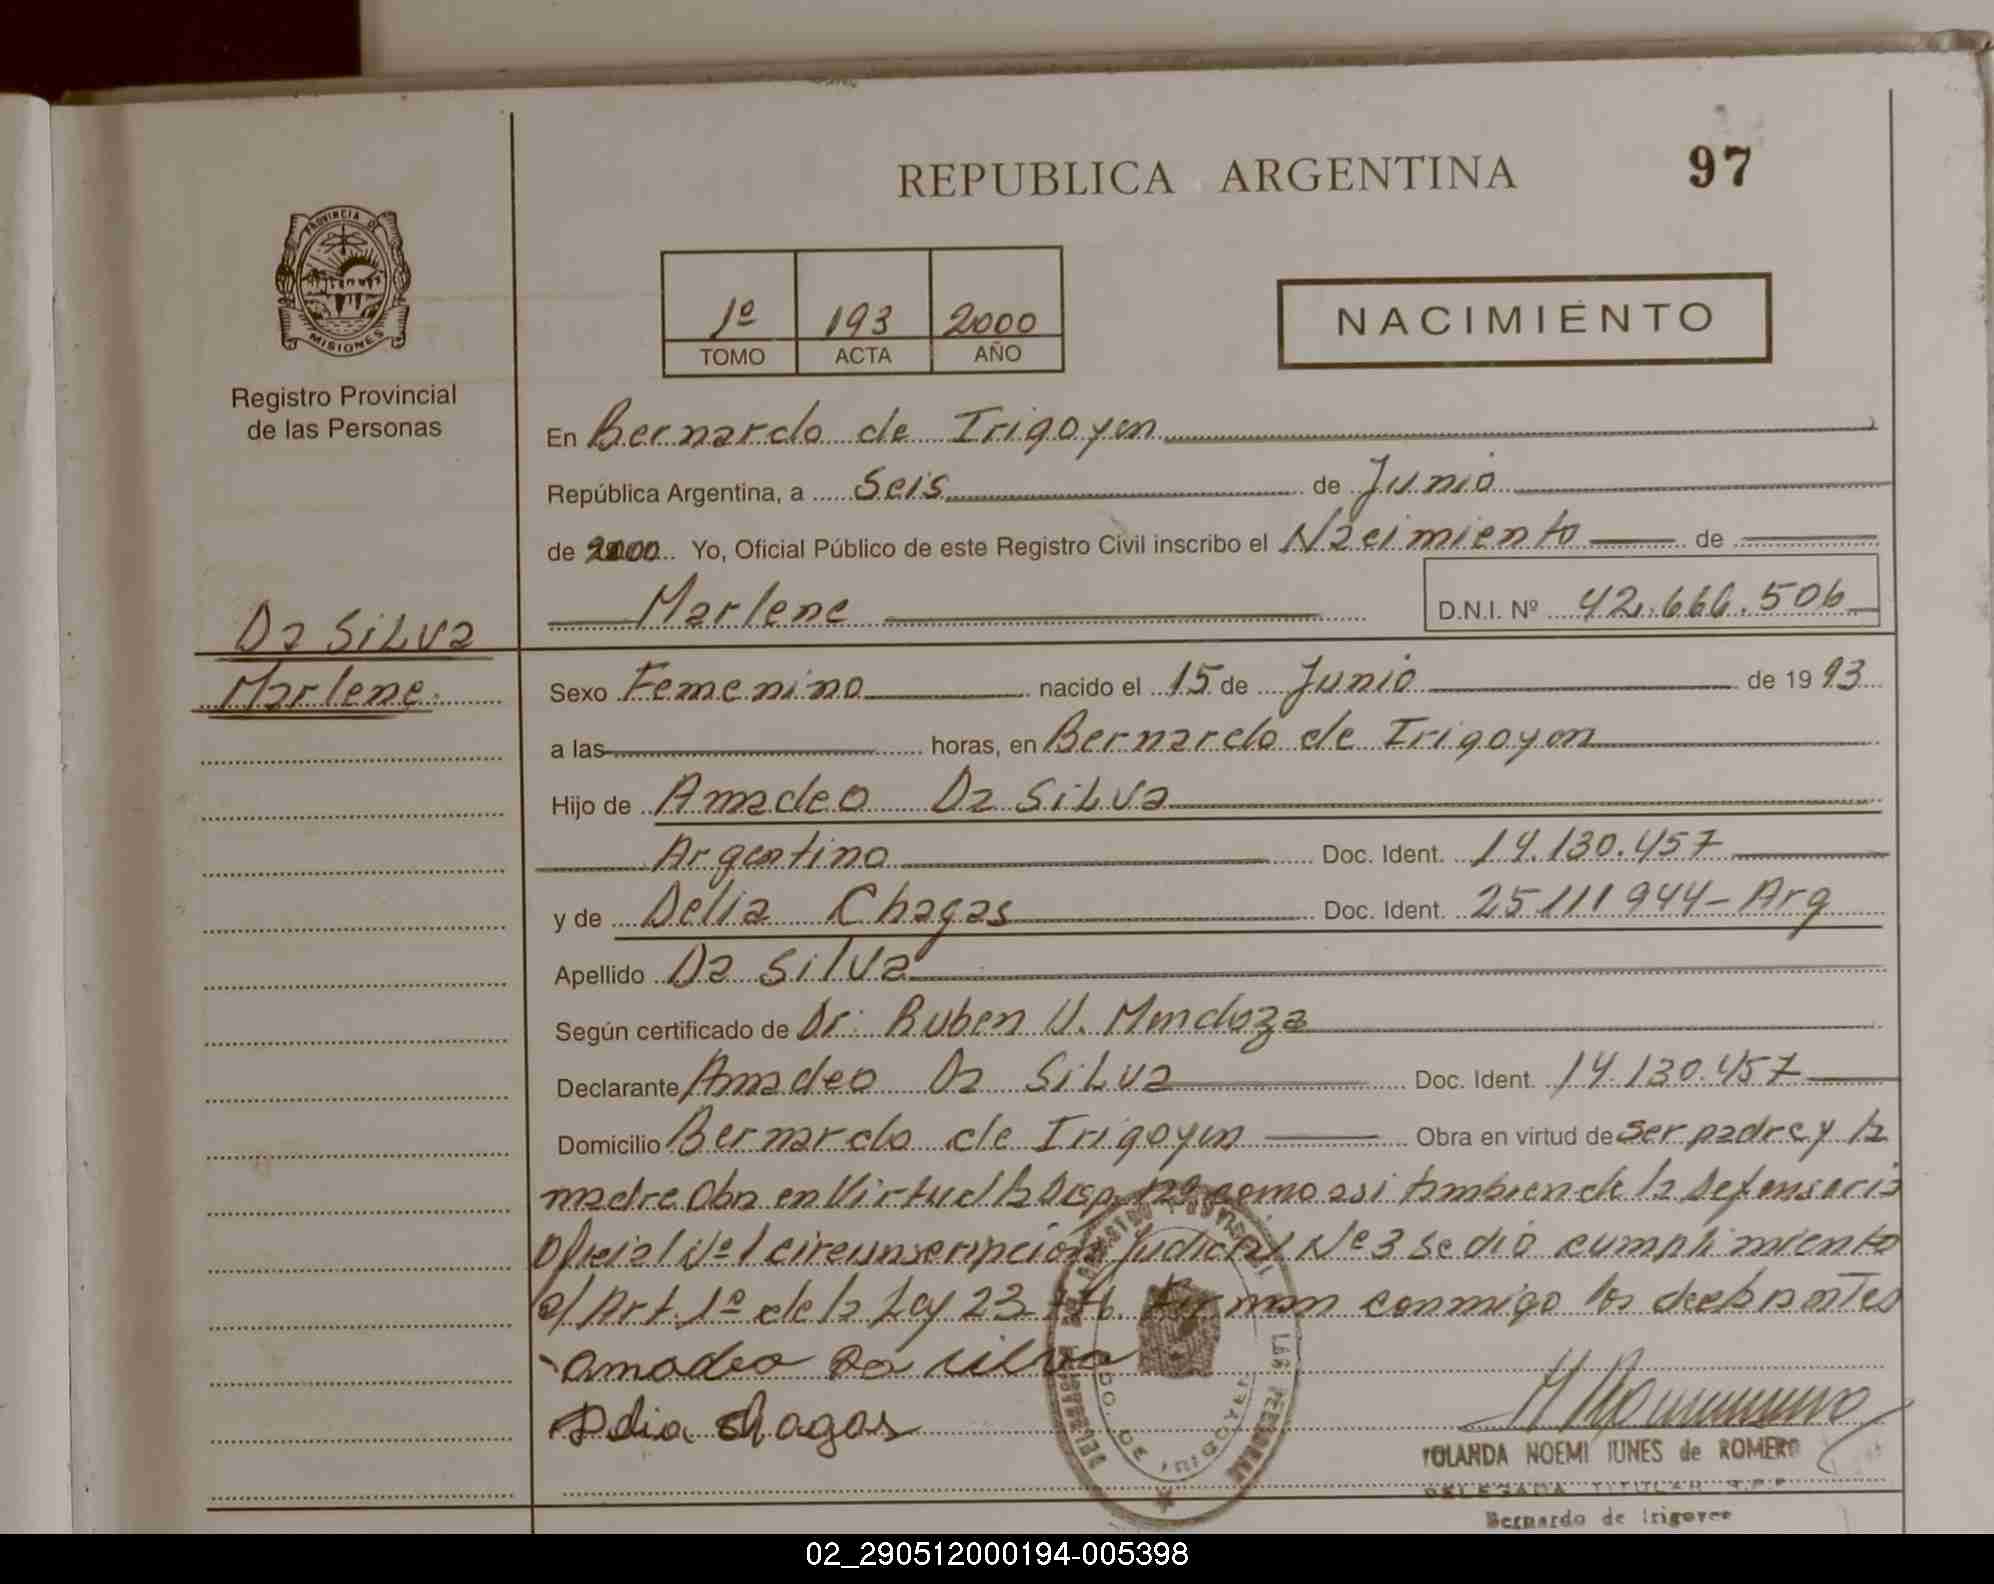 REPUBLICA ARGENTINA
97
PROVINCIA DE
MISIONES
Registro Provincial
de las Personas
1º 193 2000
TOMO ACTA AÑO
NACIMIENTO
En Bernardo de Irigoyen
República Argentina, a Seis de Junio
de 2000 Yo, Oficial Público de este Registro Civil inscribo el Nacimiento de
Marlene D.N.I. Nº 42.666.506
Da SiLva
Marlene.
Sexo Femenino nacido el 15 de Junio de 1993
a las horas, en Bernardo de Irigoyen
Hijo de Amadeo Da SiLva
Argentino Doc. Ident. 14.130.457
y de Delia Chagas Doc. Ident. 25111944- Arg
Apellido Da Silva
Según certificado de Dr. Ruben U. Mendoza
Declarante Amadeo Da SiLva Doc. Ident. 14.130.457
Domicilio Bernardo de Irigoyen Obra en virtud de ser padre y la
madre Obra en Virtud la Disp. como asi tambien de la Defensoria
Oficial Nº 1 circunscripción Judicial Nº 3 se dió cumplimiento
a/ Art. 1º de la Ley 23. Firman conmigo los declarantes
Amadeo Da silva
Delia Chagas
YOLANDA NOEMI IUNES de ROMERO
DELEGADA TITULAR
Bernardo de Irigoyen
02_290512000194-005398